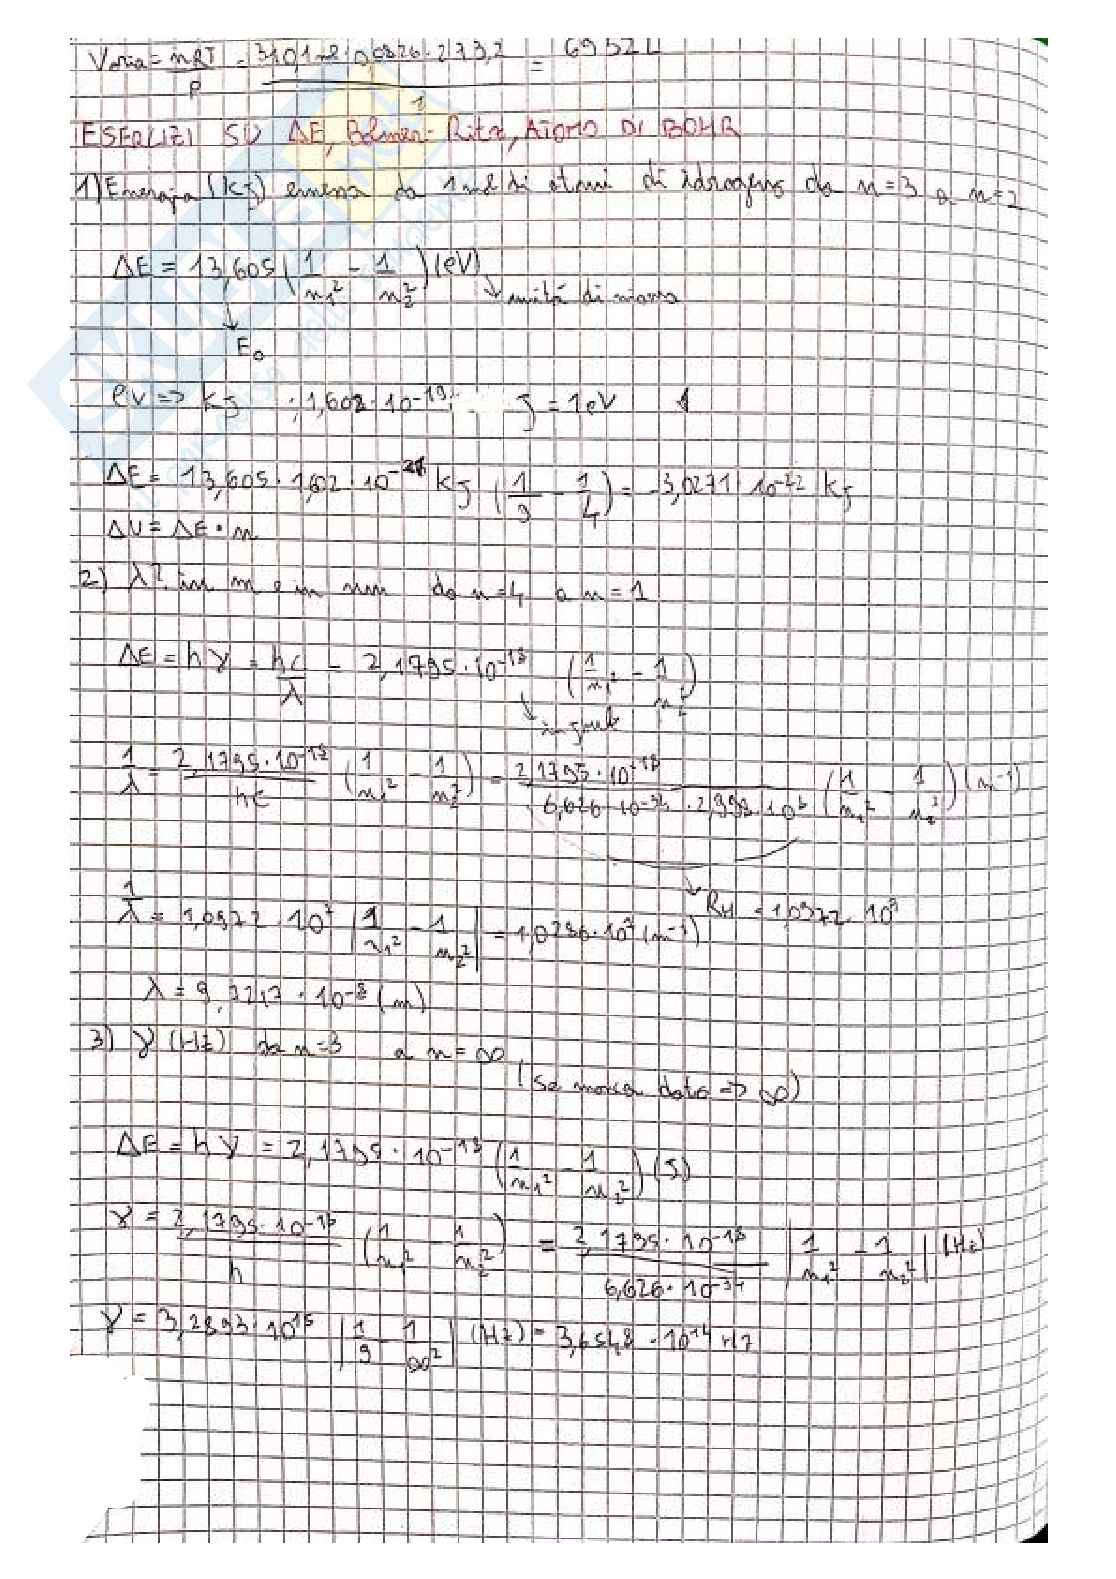 V aria = nRT/P = 310,1 mol · 0,0826 · 273,2 / 1 = 6952 L
ESERCIZI SU ΔE, Balmer-Ritz, ATOMO DI BOHR
1) Energia (kJ) emessa da 1 mol di atomi di idrogeno da n=3 a n=2
ΔE = 13,605 (1/n₁² - 1/n₂²) (eV) ↘ unità di misura
↓
E₀
eV => kJ : 1,602·10⁻¹⁹ J = 1eV
ΔE = 13,605 · 1,602 · 10⁻²¹ kJ (1/9 - 1/4) = -3,0271 · 10⁻²² kJ
ΔU = ΔE · n
2) λ? in m e in nm da n=4 a n=1
ΔE = hγ = hc/λ = 2,1795·10⁻¹⁸ (1/n₁² - 1/n₂²)
↘ in joule
1/λ = 2,1795·10⁻¹⁸/hc (1/n₁² - 1/n₂²) = 2,1795·10⁻¹⁸/6,626·10⁻³⁴ · 2,998·10⁸ (1/n₁² - 1/n₂²) (m⁻¹)
1/λ = 1,0972 · 10⁷ |1/n₁² - 1/n₂²| = 1,0286·10⁷ (m⁻¹)
↘ RH = 1,0972 · 10⁷
λ = 9,7217 · 10⁻⁸ (m)
3) γ (Hz) da n=3 a n=∞
(se manca dato => ∞)
ΔE = hγ = 2,1795·10⁻¹⁸ (1/n₁² - 1/n₂²) (J)
γ = 2,1795·10⁻¹⁸/h (1/n₁² - 1/n₂²) = 2,1795·10⁻¹⁸/6,626·10⁻³⁴ |1/n₁² - 1/n₂²| (Hz)
γ = 3,2893·10¹⁵ |1/9 - 1/∞²| (Hz) = 3,6548 · 10¹⁴ Hz